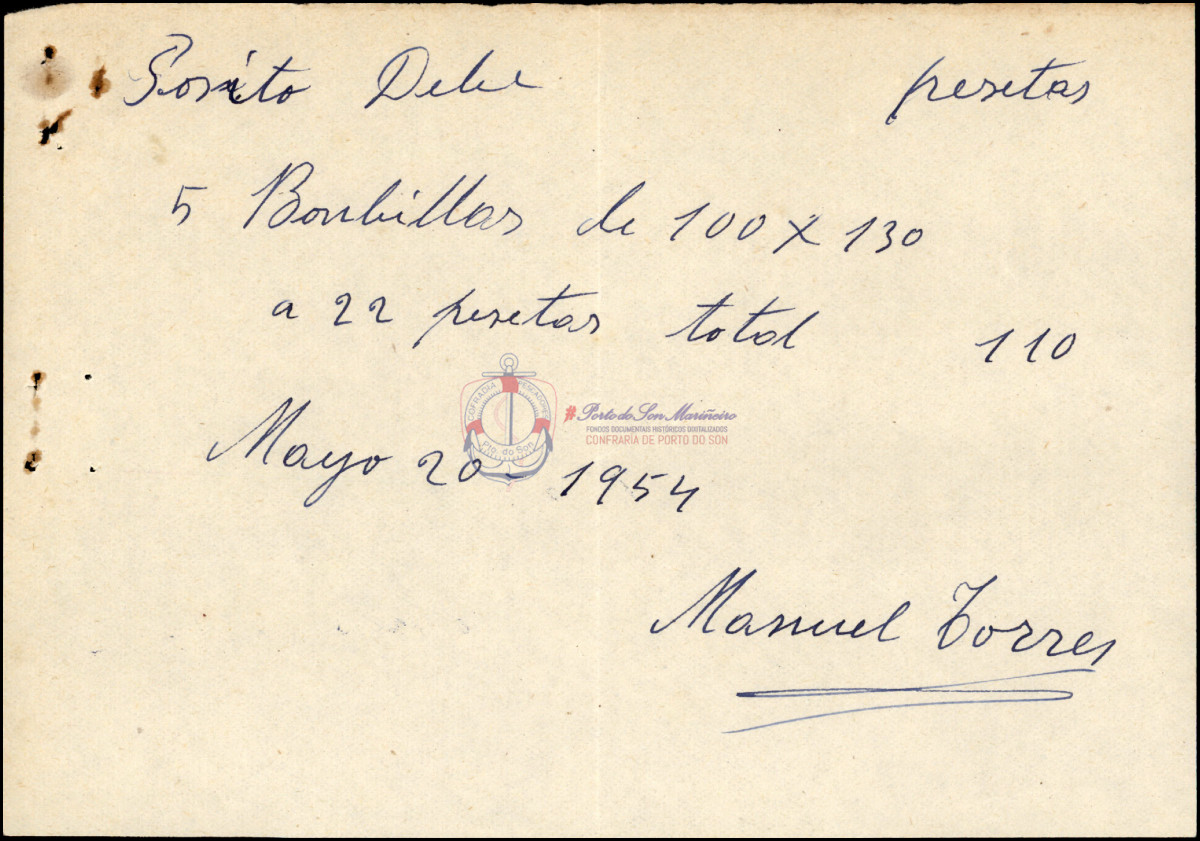 Posito Debe pesetas
5 Bonbillas de 100 x 130
a 22 pesetas total 110
COFRADIA PESCADORES
Pto. do Son
# Porto do Son Mariñeiro
FONDOS DOCUMENTAIS HISTÓRICOS DIXITALIZADOS
CONFRARÍA DE PORTO DO SON
Mayo 20 - 1954
Manuel Torres